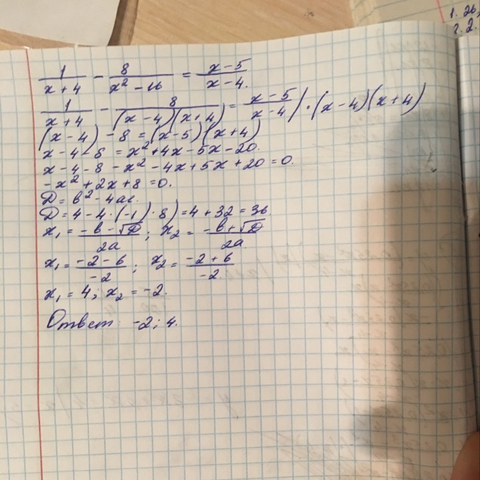 1/(x+4) - 8/(x²-16) = (x-5)/(x-4)
1/(x+4) - 8/((x-4)(x+4)) = (x-5)/(x-4) / · (x-4)(x+4)
(x-4) - 8 = (x-5)(x+4)
x-4-8 = x²+4x-5x-20.
x-4-8-x²-4x+5x+20=0.
-x²+2x+8=0.
D=b²-4ac.
D=4-4·(-1)·8)=4+32=36
x₁=(-b-√D)/2a; x₂=(-b+√D)/2a
x₁=(-2-6)/-2; x₂=(-2+6)/-2.
x₁=4; x₂=-2.
Ответ -2; 4.